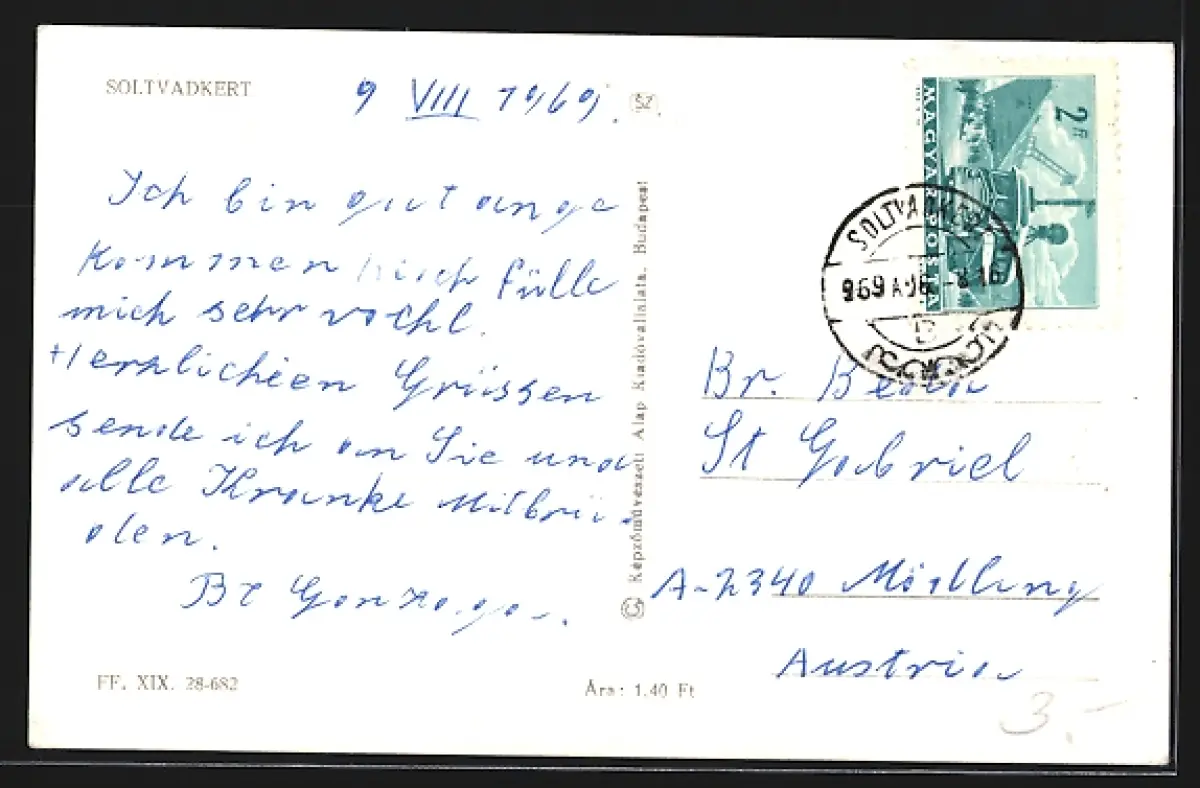 SOLTVADKERT
9 VIII 1969.
SZ
Ich bin gut ange
kommen fülle
mich sehr vohl.
Herzlichen Grüssen
sende ich an Sie und
alle Kranke Mitbrü-
den.
Br Gonzaga.
FF. XIX. 28-682
Ára: 1.40 Ft
© Képzőművészeti Alap Kiadóvállalata, Budapest
2 Ft
MAGYAR POSTA
SOLTVADKERT
969
Br. Beda
St Gabriel
A-2340 Mödling
Austria
3.-